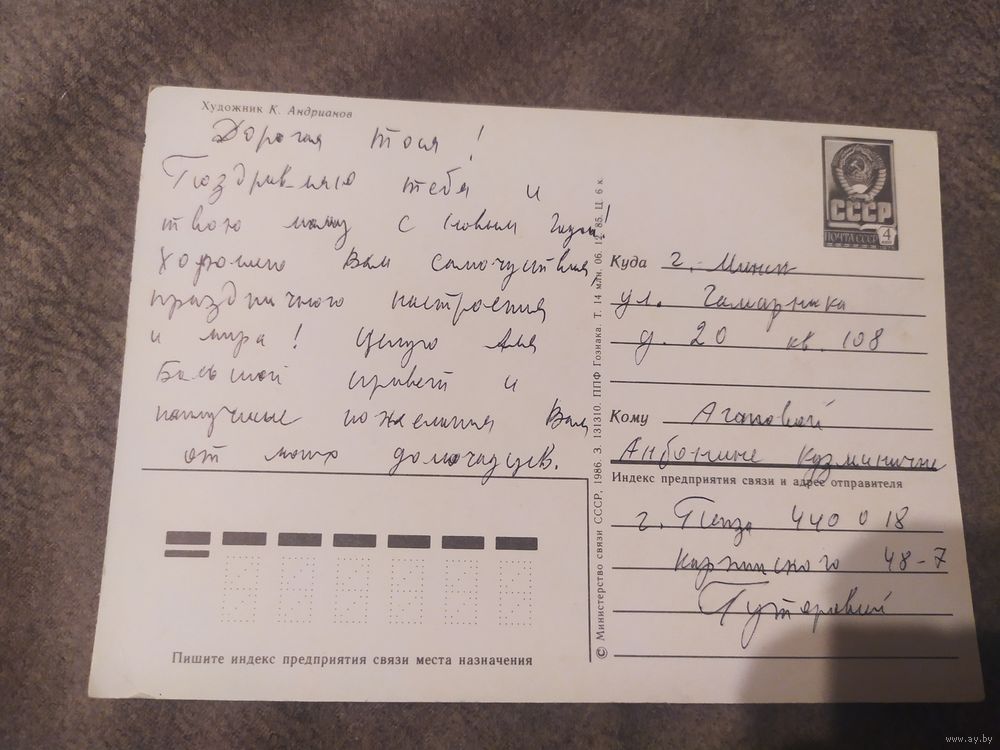 Художник К. Андрианов
Дорогая Тося!
Поздравляю тебя и
твою маму с Новым годом!
Хорошего Вам самочувствия,
праздничного настроения
и мира! Целую Аня
Большой привет и
наилучшие пожелания Вам
от моих домочадцев.
СССР
ПОЧТА СССР 4
Куда г. Минск
ул. Гамарника
д. 20 кв. 108
Кому Агаповой
Антонине Кузминичне
Индекс предприятия связи и адрес отправителя
г. Пенза 440018
Карпинского 48-7
© Министерство связи СССР, 1986. З. 131310. ППФ Гознака. Т. 14 млн. 06. 12. 85. Ц. 6 к.
Пишите индекс предприятия связи места назначения
www.ay.by